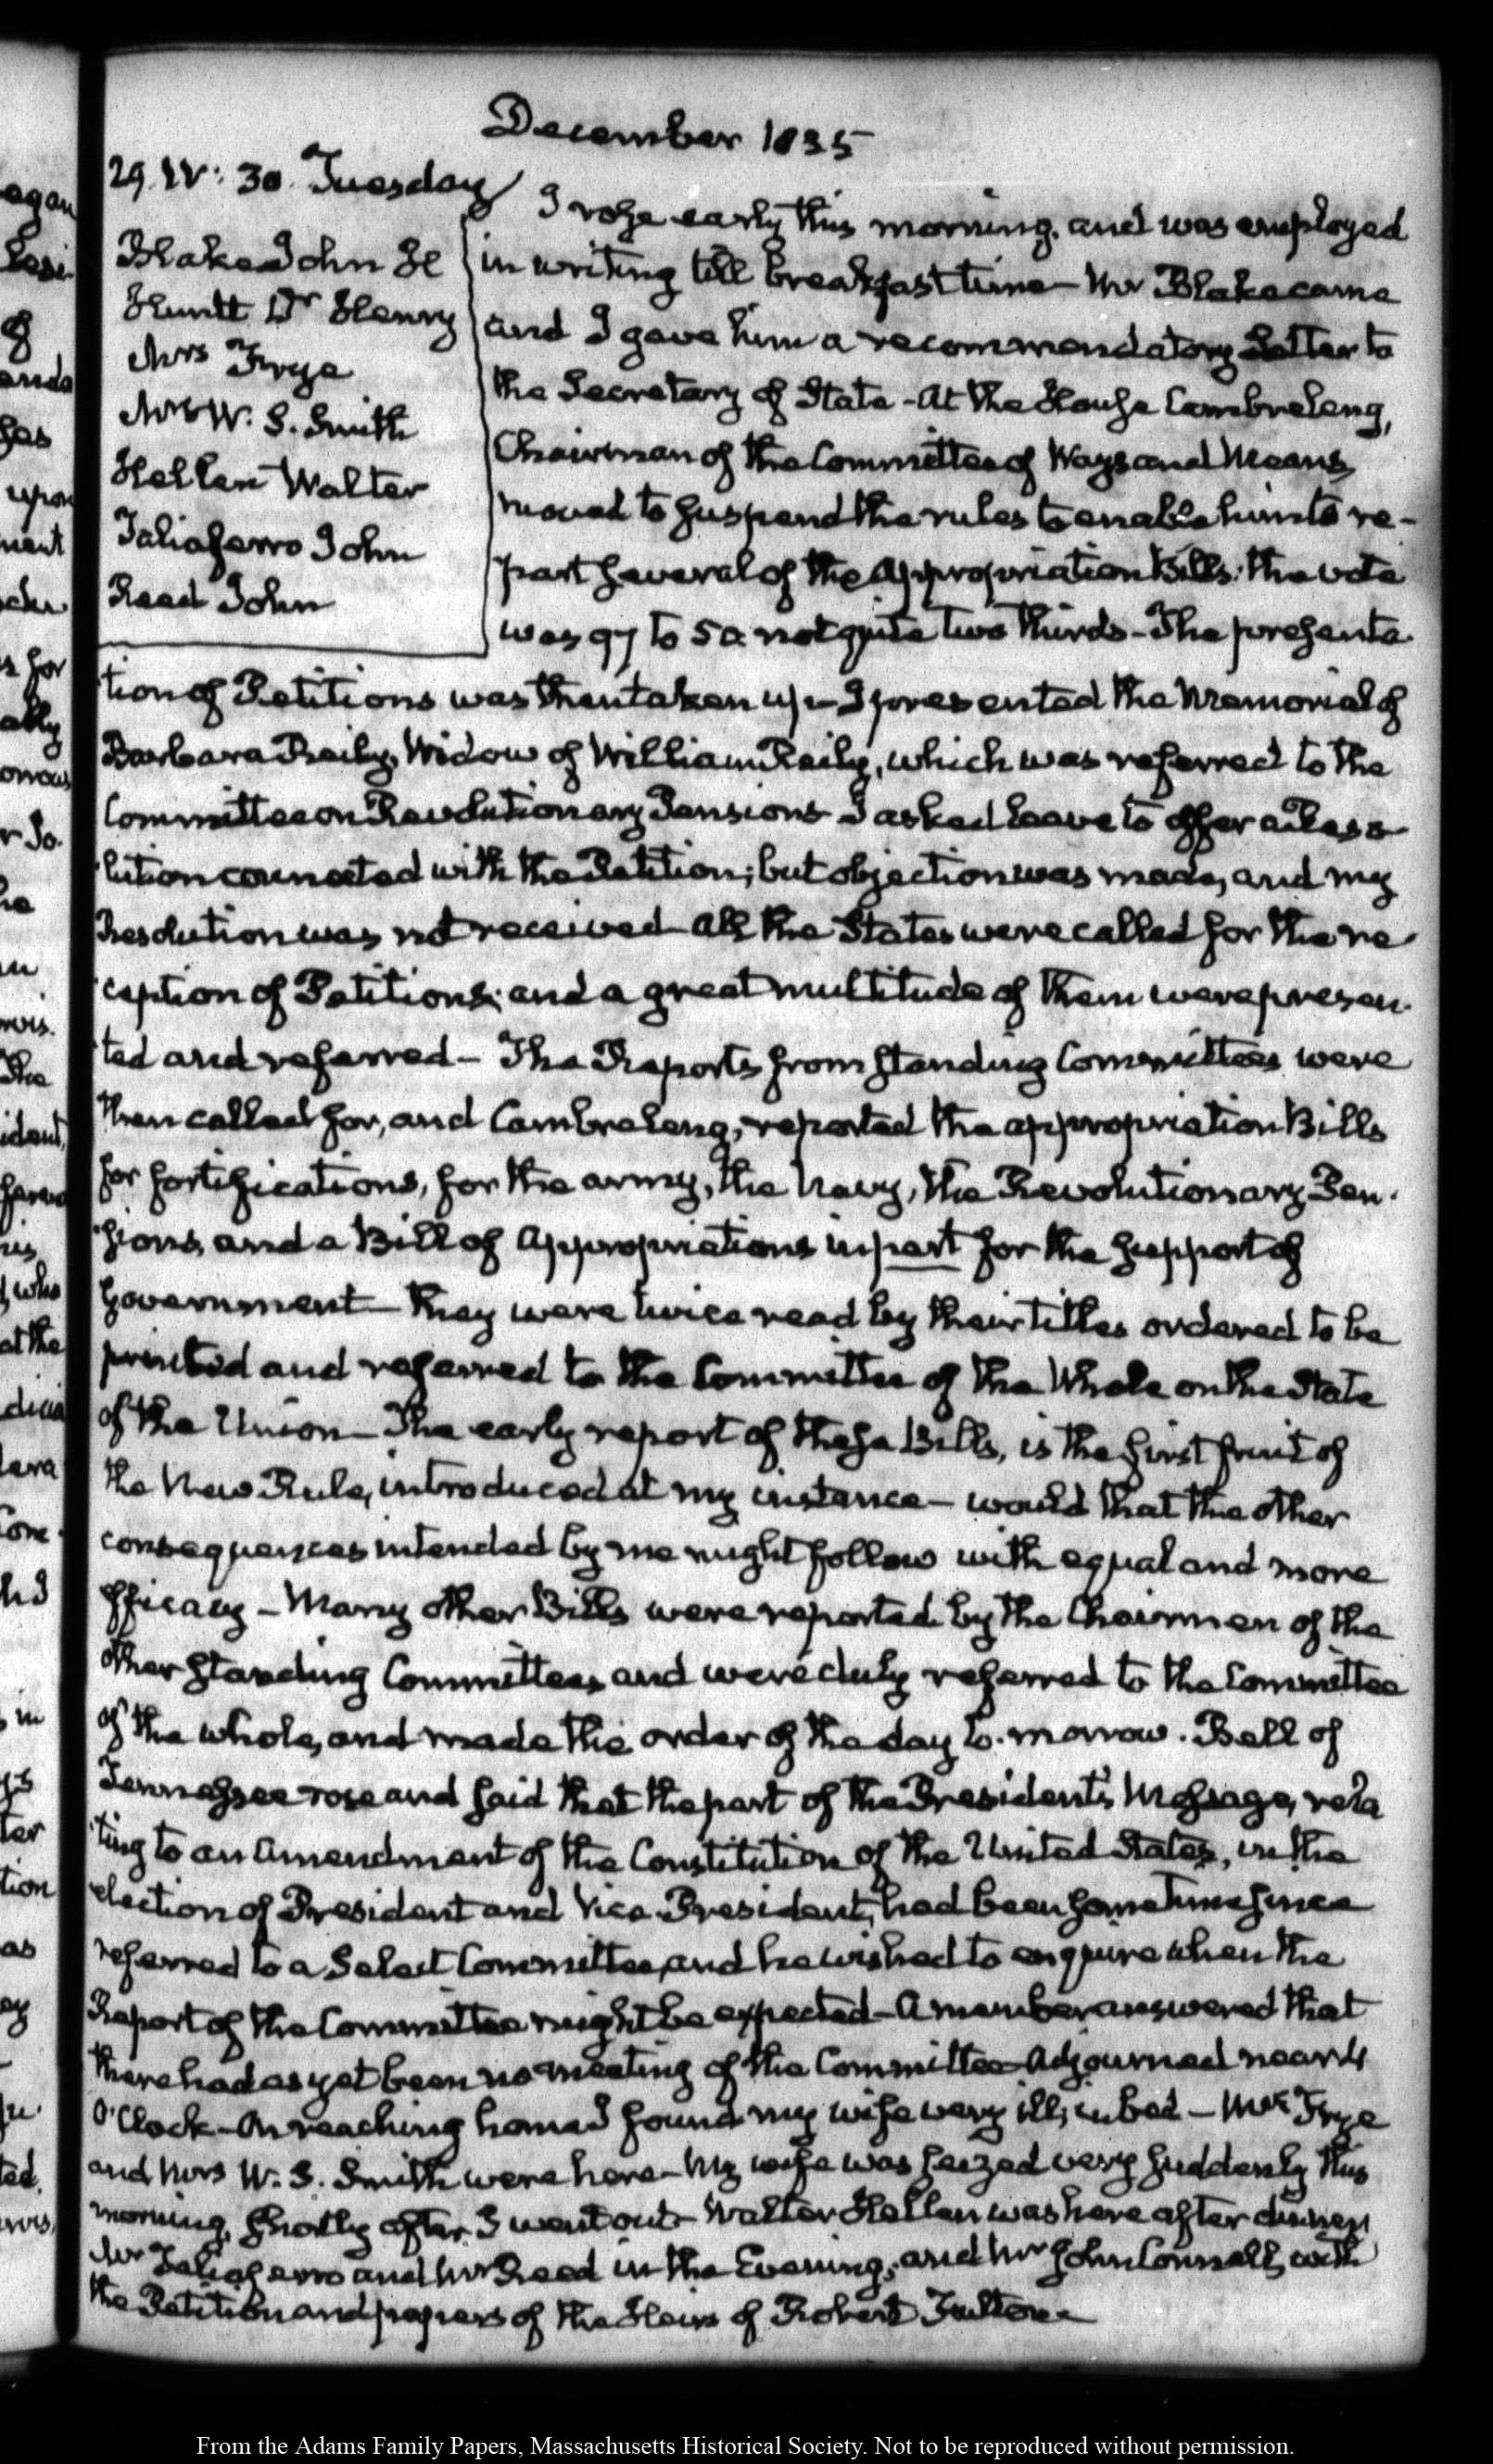 December 1835
29. IV: 30. Tuesday
Blake John H
Huntt Dr Henry
Mrs Frye
Mrs W. S. Smith
Hellen Walter
Taliaferro John
Reed John
I rose early this morning, and was employed
in writing till breakfast time — Mr Blake came
and I gave him a recommendatory Letter to
the Secretary of State — At the House Cambreleng,
Chairman of the Committee of Ways and Means,
moved to suspend the rules to enable him to re-
port several of the Appropriation Bills: the vote
was 97 to 52 not quite two thirds — The presenta-
tion of Petitions was then taken up — I presented the Memorial of
Barbara Reily, Widow of William Reily, which was referred to the
Committee on Revolutionary Pensions — I asked leave to offer a Reso-
lution connected with the Petition; but objection was made, and my
Resolution was not received — All the States were called for the re-
ception of Petitions; and a great multitude of them were presen-
ted and referred — The Reports from standing Committees were
then called for, and Cambreleng, reported the appropriation Bills
for fortifications, for the army, the Navy, the Revolutionary Pen-
sions, and a Bill of Appropriations in part for the support of
Government — They were twice read by their titles ordered to be
printed and referred to the Committee of the Whole on the State
of the Union — The early report of these Bills, is the first fruit of
the New Rule, introduced at my instance — would that the other
consequences intended by me might follow with equal and more
efficacy — Many other Bills were reported by the Chairmen of the
other standing Committees, and were duly referred to the Committee
of the whole, and made the order of the day to-morrow. Bell of
Tennessee rose and said that the part of the President's Message, rela
ting to an Amendment of the Constitution of the United States, in the
election of President and Vice-President, had been some time since
referred to a Select Committee, and he wished to enquire when the
Report of the Committee might be expected — A member answered that
there had as yet been no meeting of the Committee — Adjourned near 4
O'Clock — On reaching home I found my wife very ill, in bed — Mrs Frye
and Mrs W. S. Smith were here — My wife was seized very suddenly this
morning, shortly after I went out — Walter Hellen was here after dinner
Mr Taliaferro and Mr Reed in the Evening; and Mr John Connell, with
the Petition and papers of the Heirs of Robert Fulton —
From the Adams Family Papers, Massachusetts Historical Society. Not to be reproduced without permission.